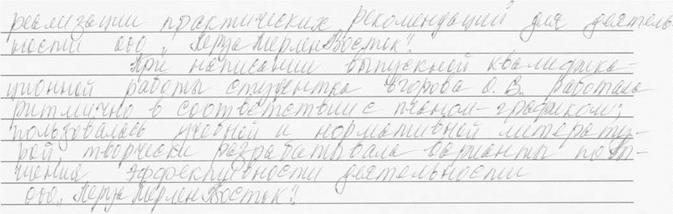 реализации практических рекомендаций для деятель-
ности ООО "Леруа Мерлен Восток".
При написании выпускной квалифика-
ционной работы студентка Егорова О. В. работала
ритмично в соответствии с планом-графиком;
пользовалась учебной и нормативной литерату-
рой, творчески разрабатывала варианты повы-
шения эффективности деятельности
ООО "Леруа Мерлен Восток".